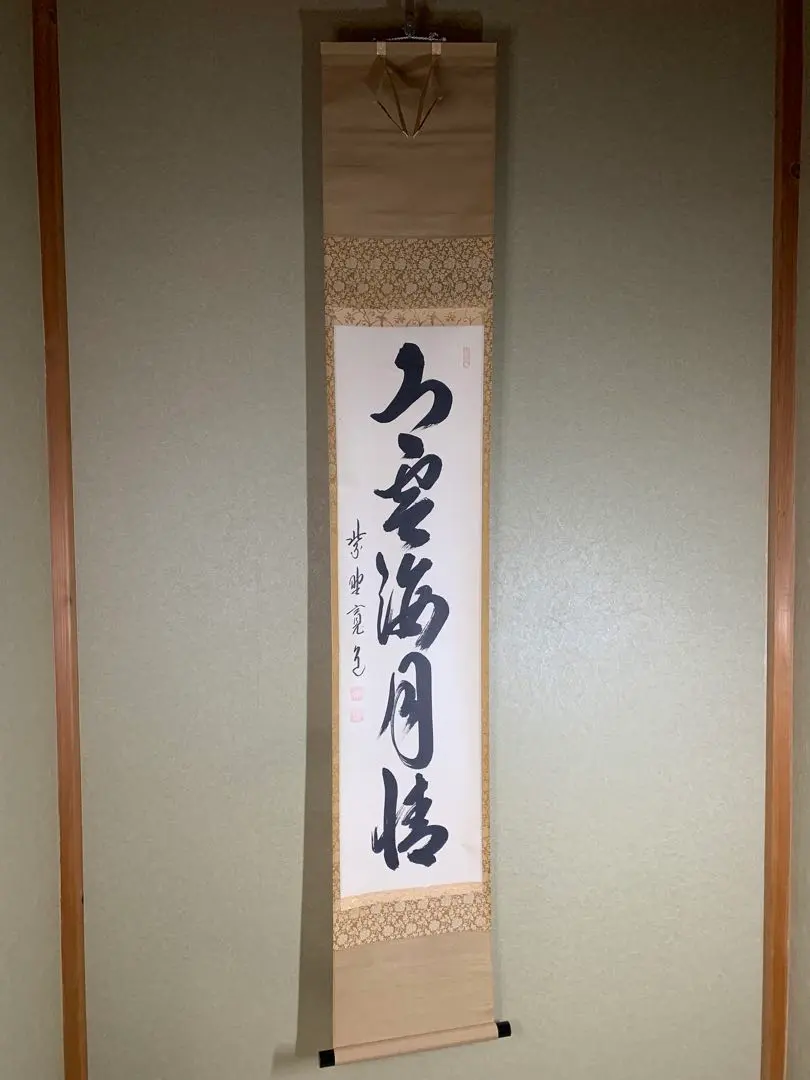 山雲海月情
紫野寛道